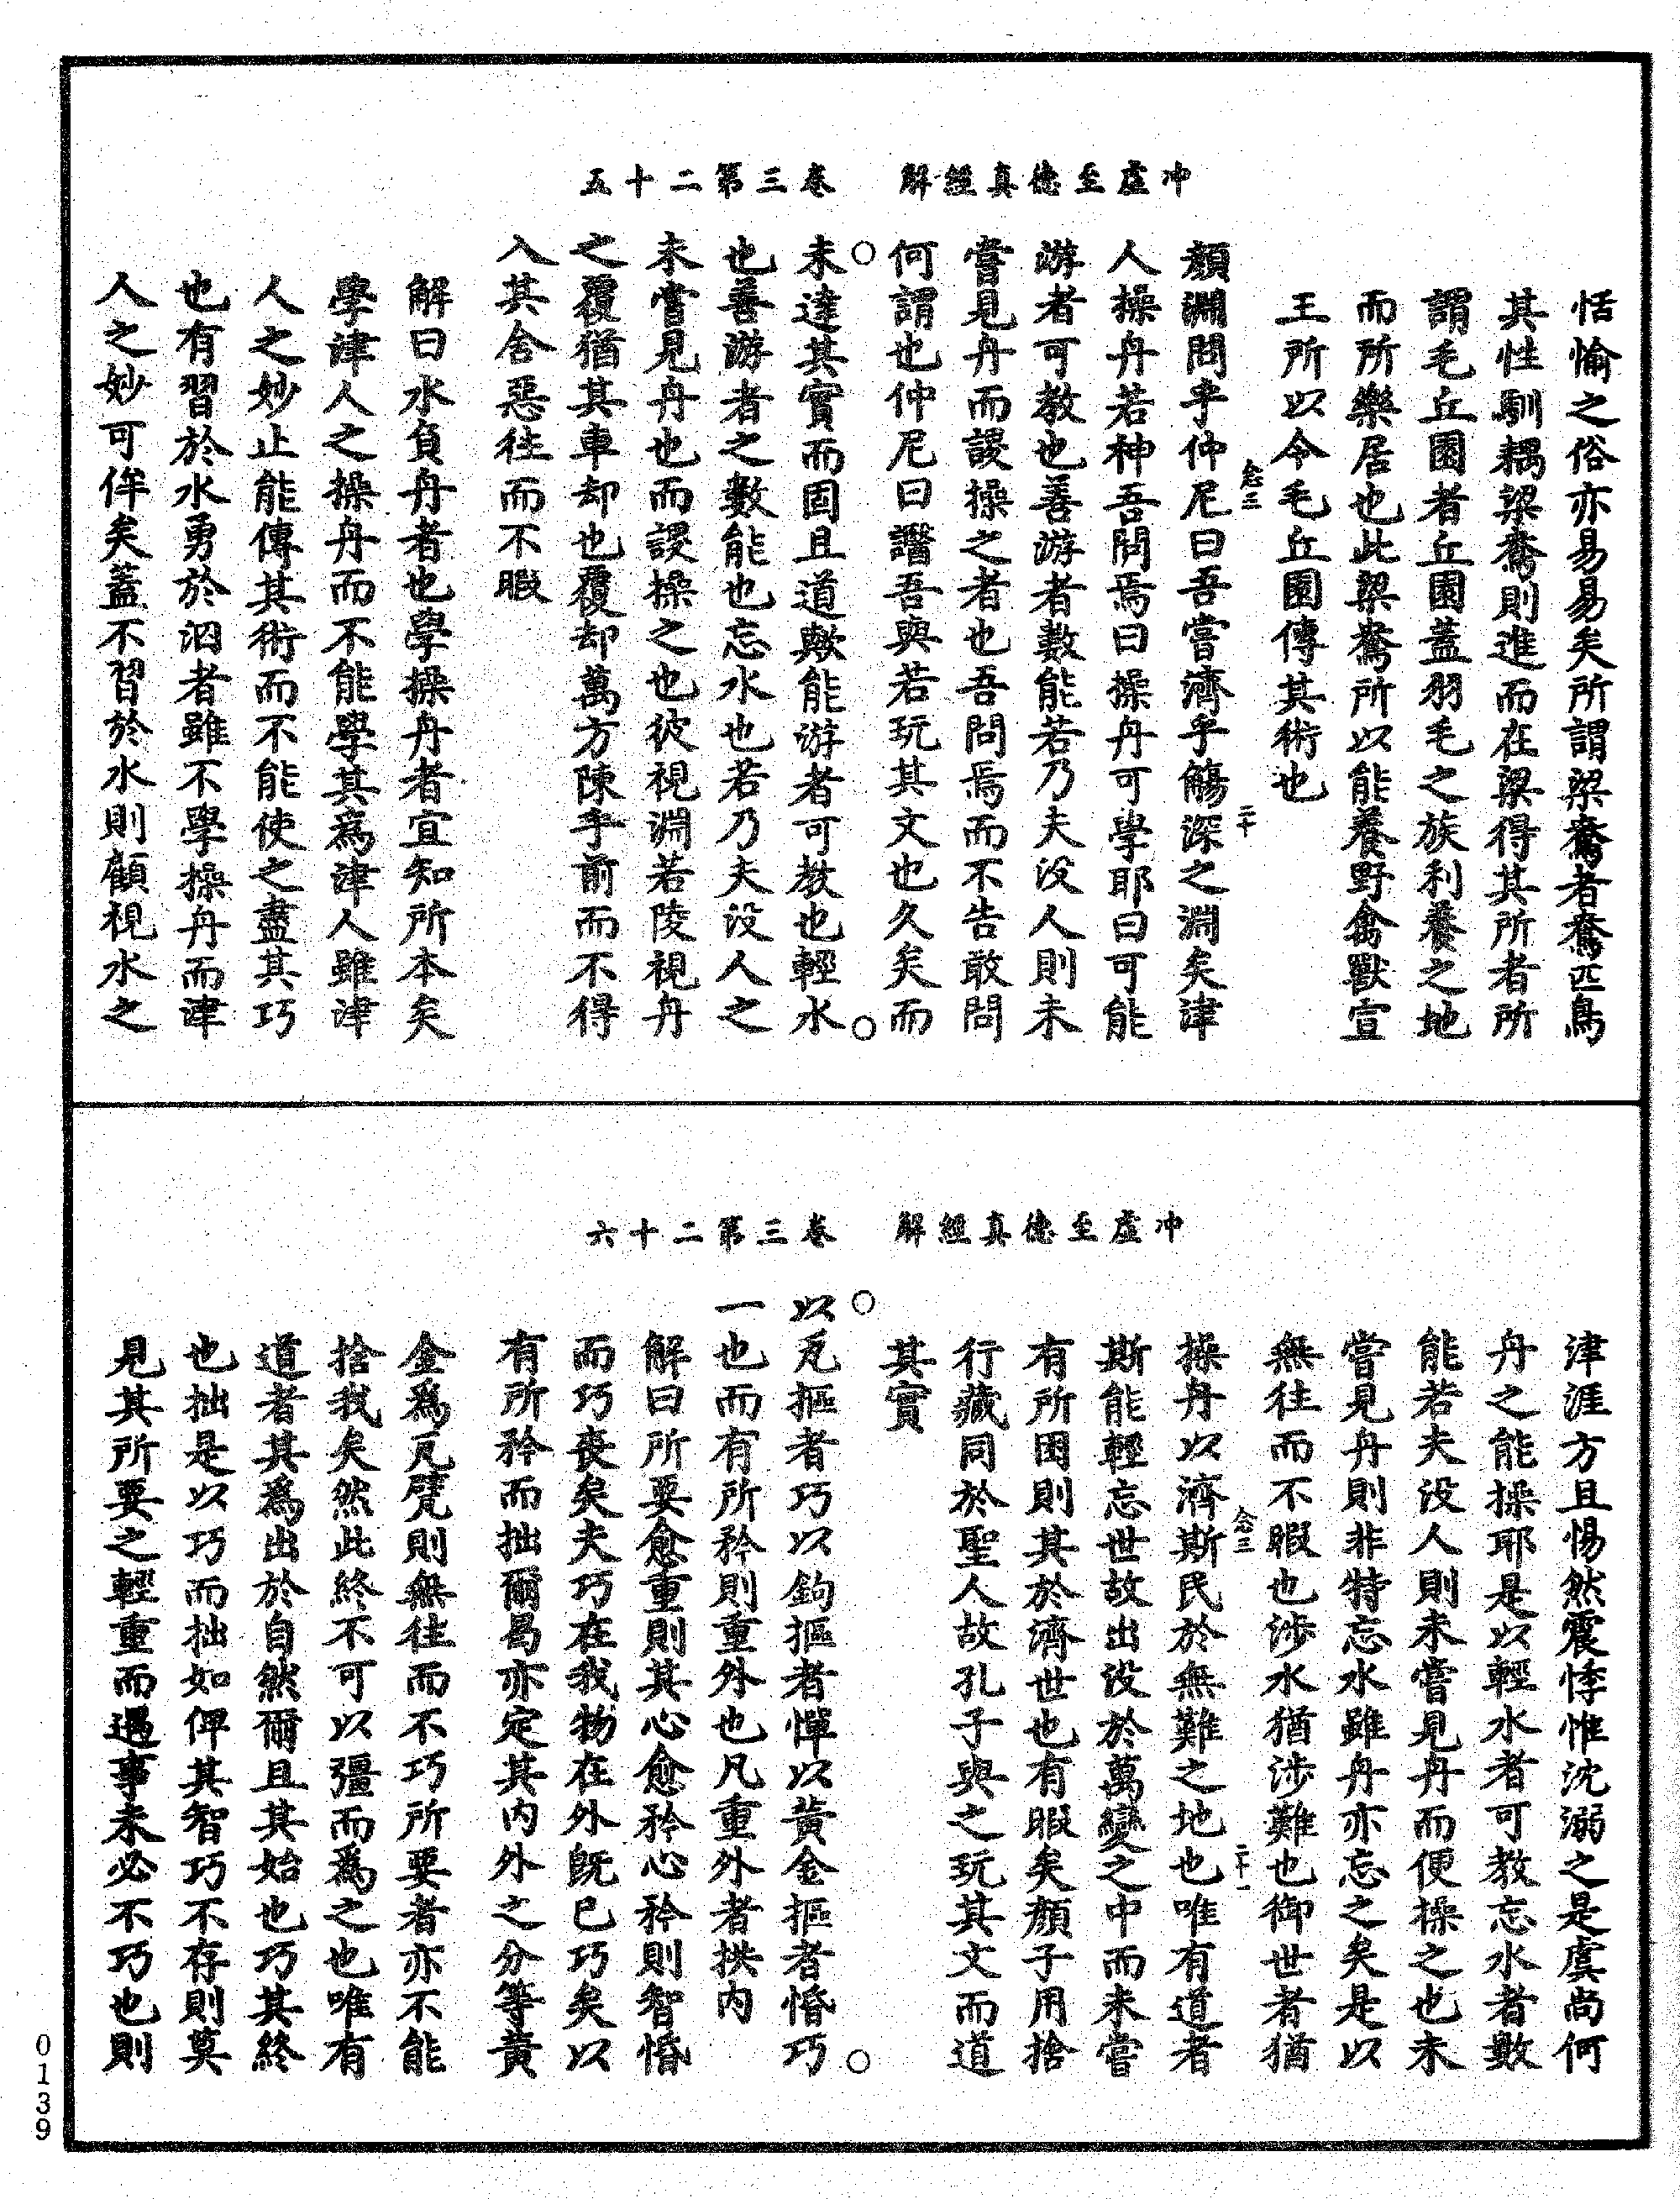 冲虛至德真經解　卷三第二十五
恬愉之俗亦易易矣所謂梁鴦者鴦匹鳥
其性馴耦梁鴦則進而在梁得其所者所
謂毛丘園者丘園蓋羽毛之族利養之地
而所樂居也此梁鴦所以能養野禽獸宣
王所以令毛丘園傳其術也
念三　二十
顏淵問乎仲尼曰吾嘗濟乎觴深之淵矣津
人操舟若神吾問焉曰操舟可學耶曰可能
游者可教也善游者數能若乃夫没人則未
嘗見舟而謖操之者也吾問焉而不告敢問
何謂也仲尼曰譆吾與若玩其文也久矣而
未達其實而固且道歟能游者可教也輕水
也善游者之數能也忘水也若乃夫没人之
未嘗見舟也而謖操之也彼視淵若陵視舟
之覆猶其車却也覆却萬方陳乎前而不得
入其舍惡往而不暇
解曰水負舟者也學操舟者宜知所本矣
學津人之操舟而不能學其爲津人雖津
人之妙止能傳其術而不能使之盡其巧
也有習於水勇於泅者雖不學操舟而津
人之妙可侔矣蓋不習於水則顧視水之
冲虛至德真經解　卷三第二十六
津涯方且惕然震悸惟沈溺之是虞尚何
舟之能操耶是以輕水者可教忘水者數
能若夫没人則未嘗見舟而便操之也未
嘗見舟則非特忘水雖舟亦忘之矣是以
無往而不暇也涉水猶涉難也御世者猶
念三　二十一
操舟以濟斯民於無難之地也唯有道者
斯能輕忘世故出没於萬變之中而未嘗
有所困則其於濟世也有暇矣顏子用捨
行藏同於聖人故孔子與之玩其文而道
其實
以瓦摳者巧以鉤摳者憚以黃金摳者惛巧
一也而有所矜則重外也凡重外者拱内
解曰所要愈重則其心愈矜心矜則智惛
而巧喪矣夫巧在我物在外旣已巧矣以
有所矜而拙爾曷亦定其内外之分等黃
金爲瓦甓則無往而不巧所要者亦不能
捨我矣然此終不可以彊而爲之也唯有
道者其爲出於自然爾且其始也巧其終
也拙是以巧而拙如俾其智巧不存則莫
見其所要之輕重而遇事未必不巧也則
0139